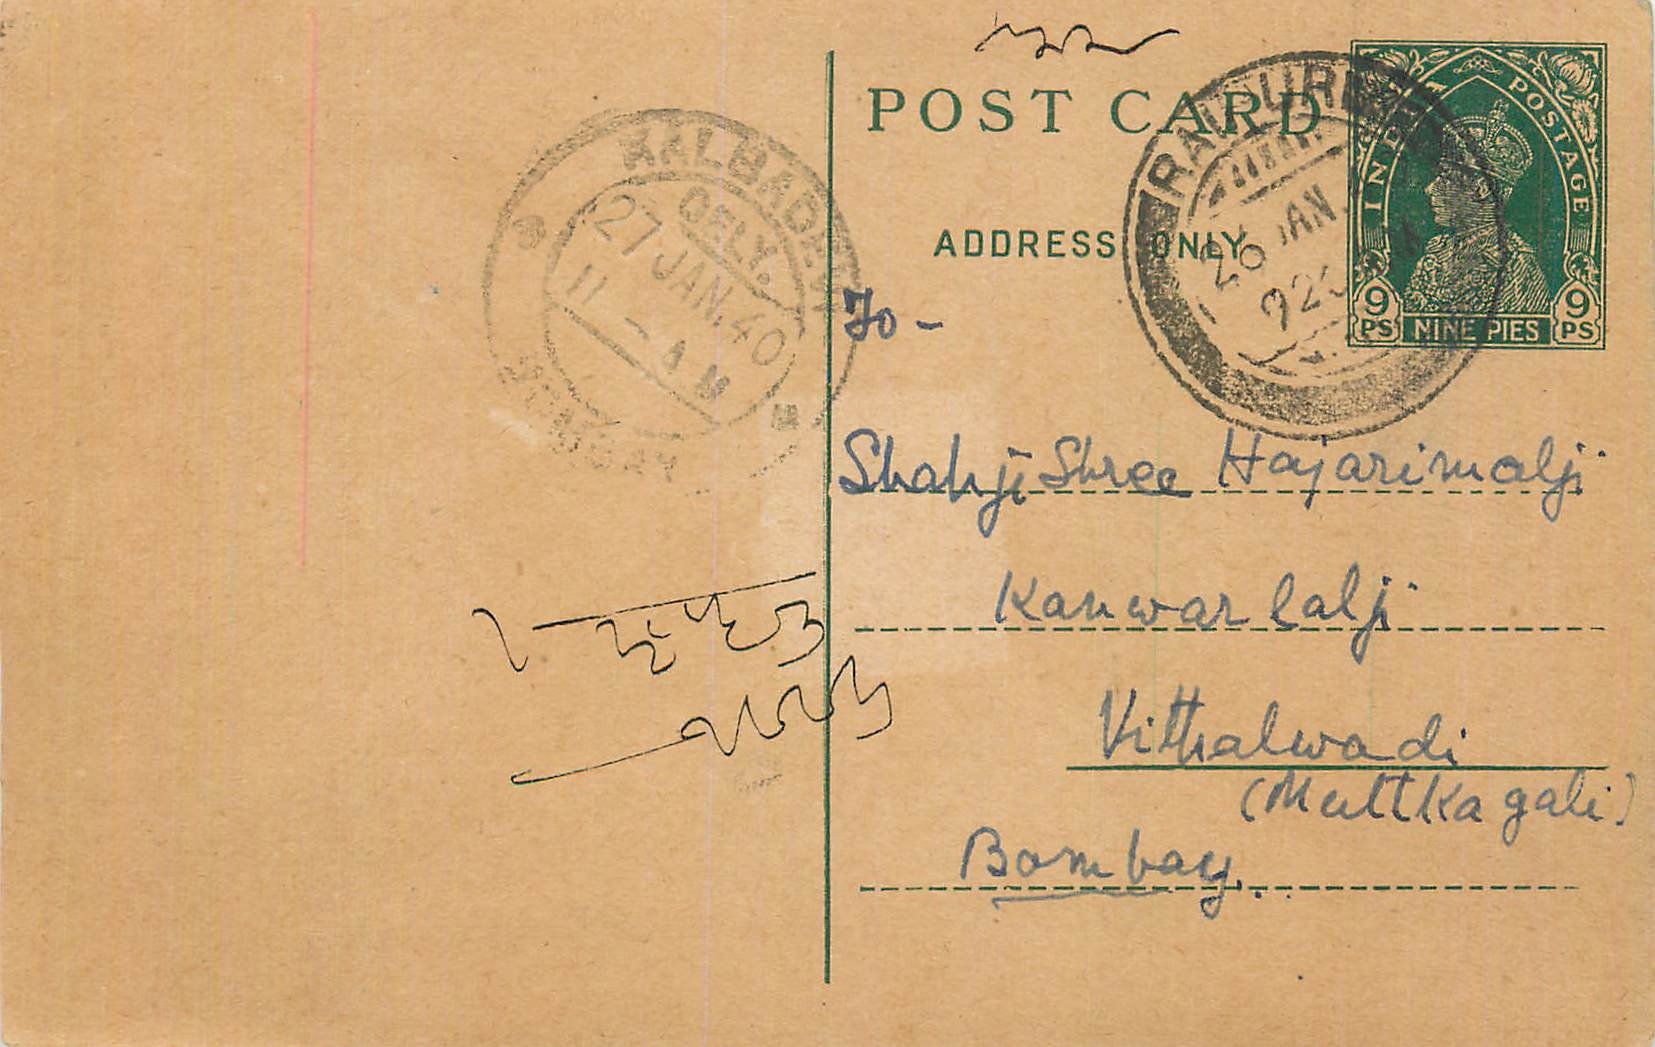 POST CARD
ADDRESS ONLY
INDIA POSTAGE
9 PS NINE PIES 9 PS
26 JAN
KALBADEVI
DELY.
27 JAN. 40
11 - AM
BOMBAY
To -
Shahji Shree Hajarimalji
Kanwarlalji
Vithalwadi
(Muttka gali)
Bombay..